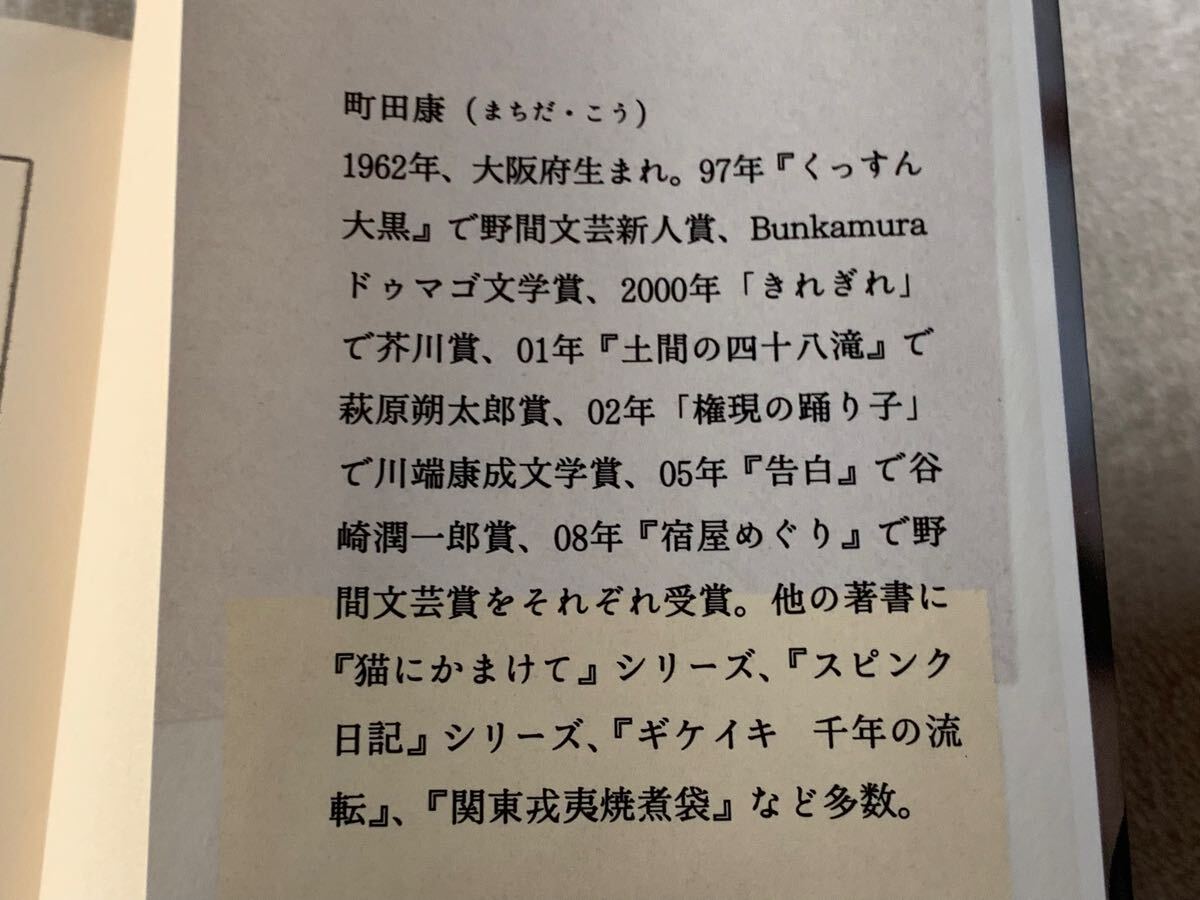 町田康（まちだ・こう）
1962年、大阪府生まれ。97年『くっすん
大黒』で野間文芸新人賞、Bunkamura
ドゥマゴ文学賞、2000年「きれぎれ」
で芥川賞、01年『土間の四十八滝』で
萩原朔太郎賞、02年「権現の踊り子」
で川端康成文学賞、05年『告白』で谷
崎潤一郎賞、08年『宿屋めぐり』で野
間文芸賞をそれぞれ受賞。他の著書に
『猫にかまけて』シリーズ、『スピンク
日記』シリーズ、『ギケイキ　千年の流
転』、『関東戎夷焼煮袋』など多数。